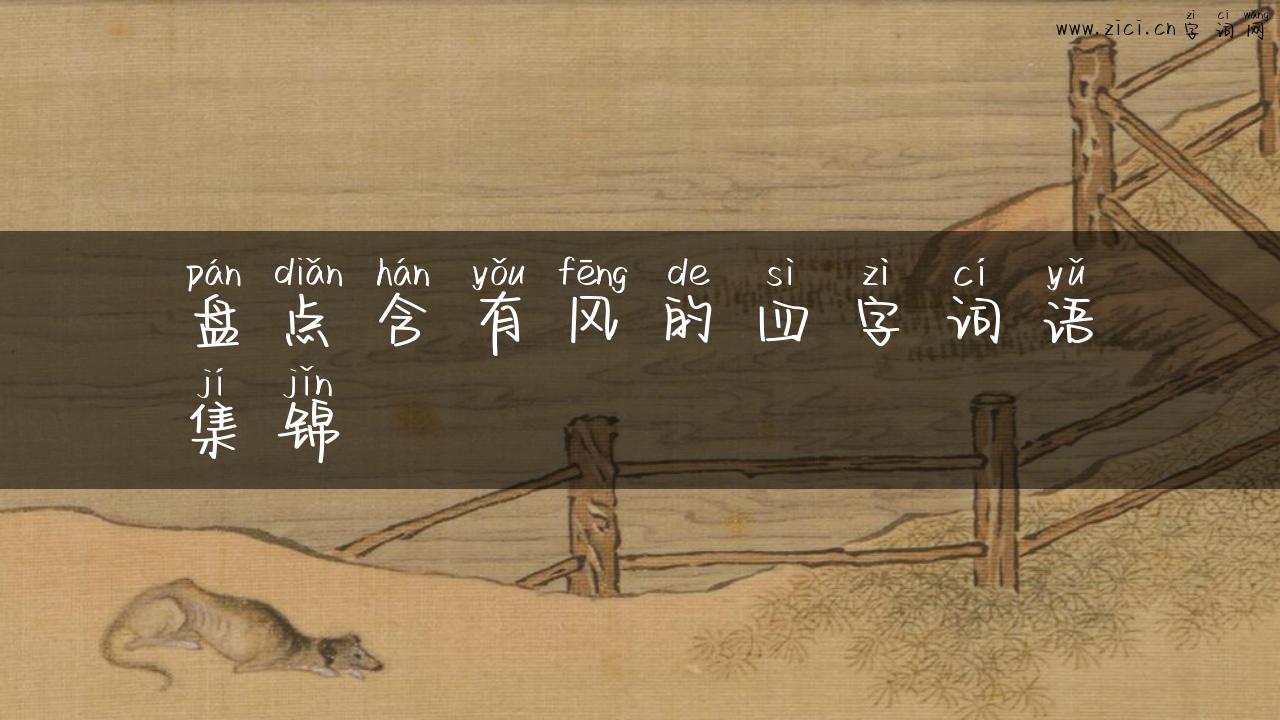 zì cí wǎng
www.zici.cn字词网
pán diǎn hán yǒu fēng de sì zì cí yǔ
盘点含有风的四字词语
jí jǐn
集锦